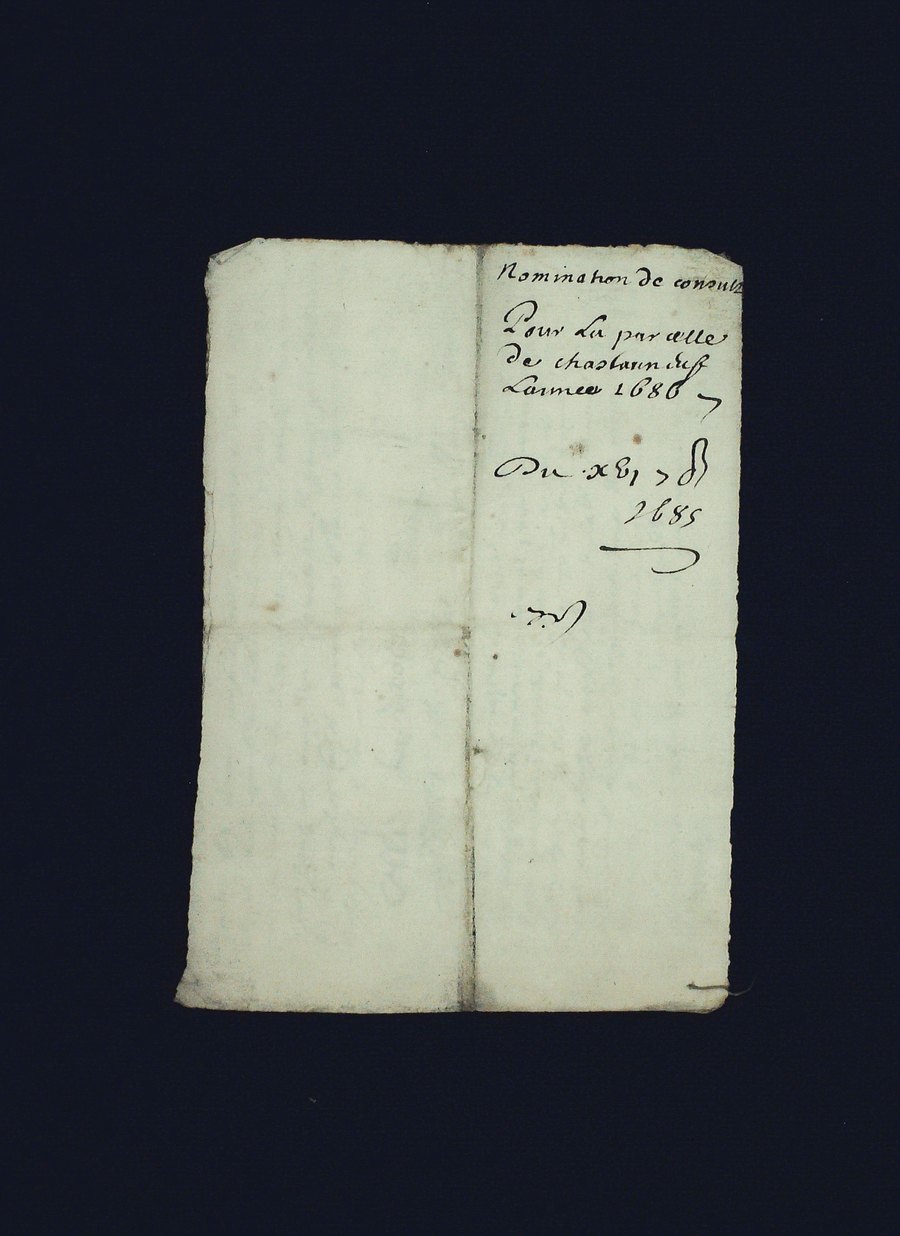 Nomination de consulz
Pour La parcelle
de chastauneuf
Lannee 1686
Du xvi 7b
1685